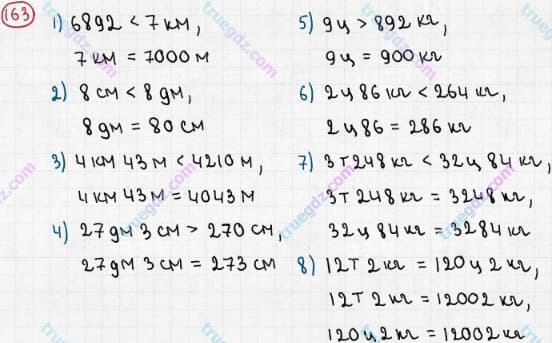 163
1) 6892 < 7 км,
7 км = 7000 м
2) 8 см < 8 дм,
8 дм = 80 см
3) 4 км 43 м < 4210 м,
4 км 43 м = 4043 м
4) 27 дм 3 см > 270 см,
27 дм 3 см = 273 см
5) 9 ц > 892 кг,
9 ц = 900 кг
6) 2 ц 86 кг < 264 кг,
2 ц 86 = 286 кг
7) 3 т 248 кг < 32 ц 84 кг,
3 т 248 кг = 3248 кг,
32 ц 84 кг = 3284 кг
8) 12 т 2 кг = 120 ц 2 кг,
12 т 2 кг = 12002 кг,
120 ц 2 кг = 12002 кг
truegdz.com